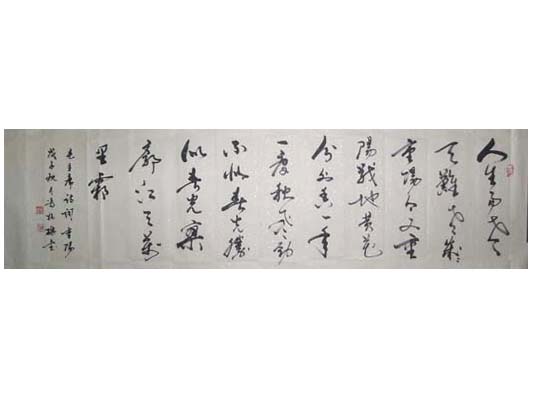 人生易老天
天難老歲歲
重陽今又重
陽戰地黄花
分外香一年
一度秋風勁
不似春光勝
似春光寥
廓江天萬
里霜
毛主席詩詞重陽
戊子秋月